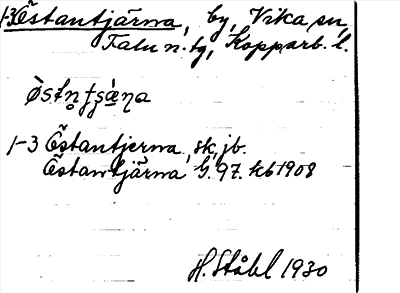 1-3 Östantjärna, by, Vika sn,
Falu n. tg, Kopparb. l.
1-3 Östantjerna, sk, jb.
Östantjärna G. 97. kb 1908
H. Ståhl 1930